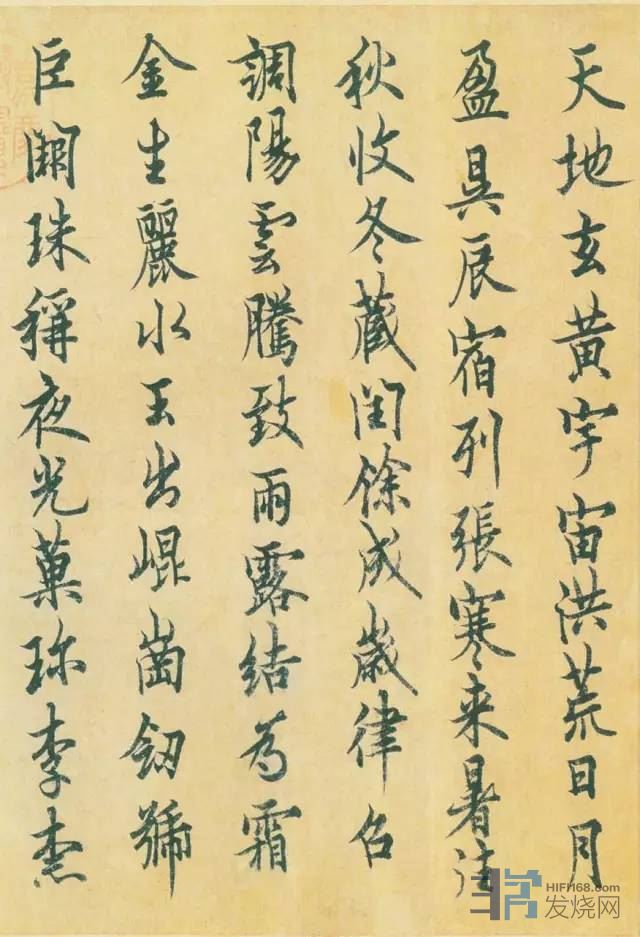 天地玄黄宇宙洪荒日月
盈昃辰宿列張寒来暑往
秋收冬藏閏餘成歲律召
調陽雲騰致雨露結為霜
金生麗水玉出崐崗劒號
巨闕珠稱夜光菓珎李柰
HIFI168.com
发烧网